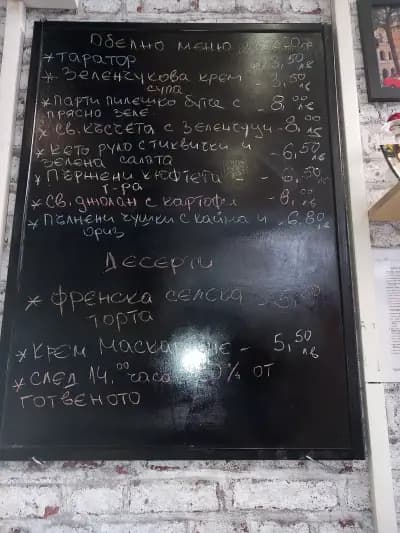 Обедно меню
* Таратор - 3,50 лв
* Зеленчукова крем - 3,50 лв
супа
* Парти пилешко бутче с - 8,00 лв
прясно зеле
* Св. късчета с зеленчуци - 8,00 лв
* Кето руло с тиквички и - 6,50 лв
зелена салата
* Пържени кюфтета - 6,50 лв
т-ра
* Св. джолан с картофи - 8,00 лв
* Пълнени чушки с кайма и - 6.80 лв
ориз
Десерти
* Френска селска
торта
* Крем Маскарпоне - 5,50 лв
* След 14,00 часа % от
готвеното